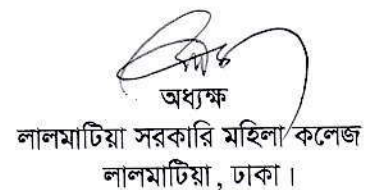 অধ্যক্ষ
লালমাটিয়া সরকারি মহিলা কলেজ
লালমাটিয়া, ঢাকা।